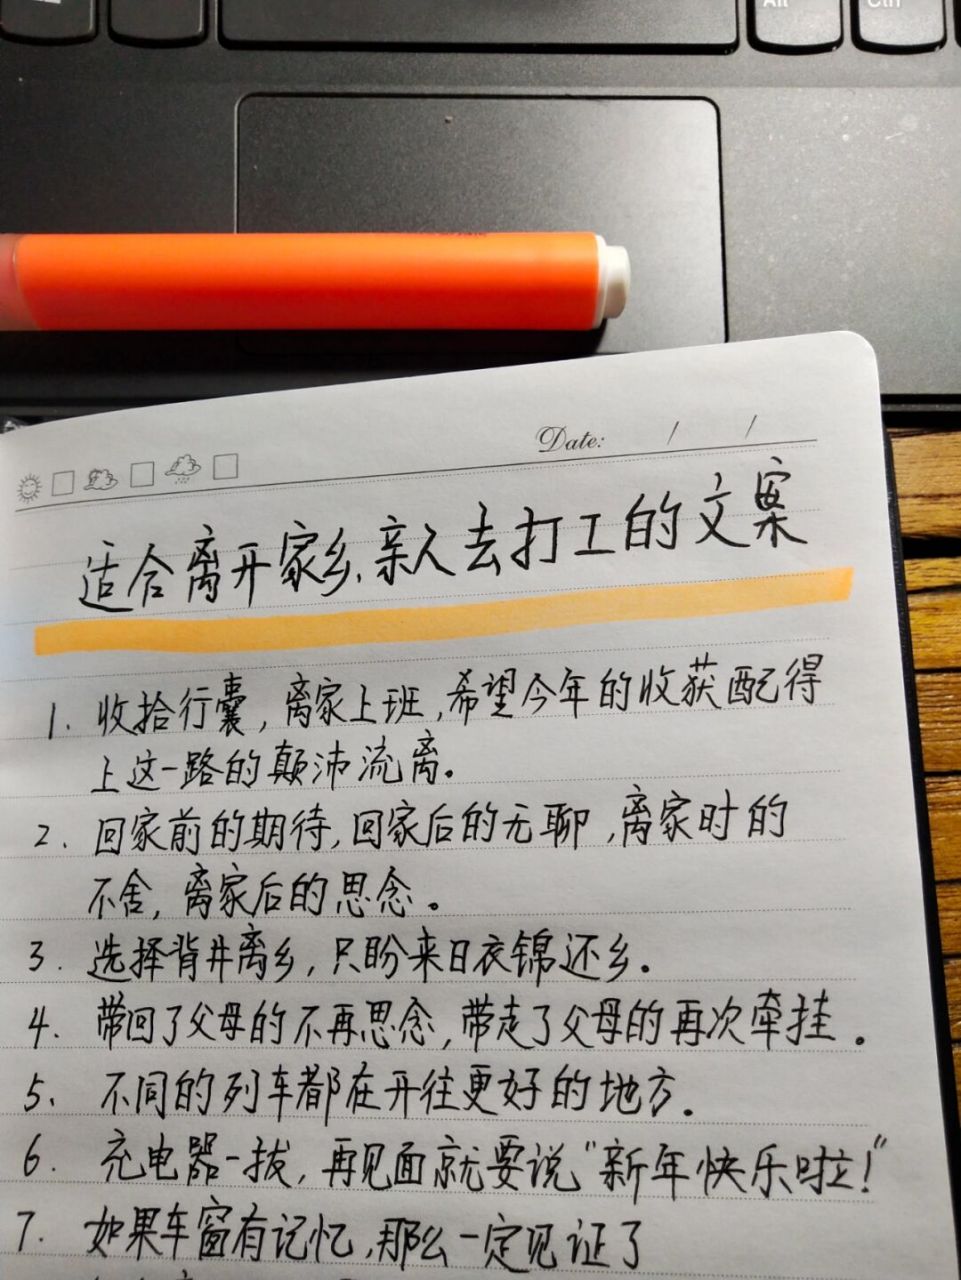 Alt
Ctrl
Date: / /
适合离开家乡、亲人去打工的文案
1. 收拾行囊，离家上班，希望今年的收获配得
上这一路的颠沛流离。
2. 回家前的期待，回家后的无聊，离家时的
不舍，离家后的思念。
3. 选择背井离乡，只盼来日衣锦还乡。
4. 带回了父母的不再思念，带走了父母的再次牵挂。
5、不同的列车都在开往更好的地方。
6. 充电器一拔，再见面就要说“新年快乐啦！”
7. 如果车窗有记忆，那么一定见证了